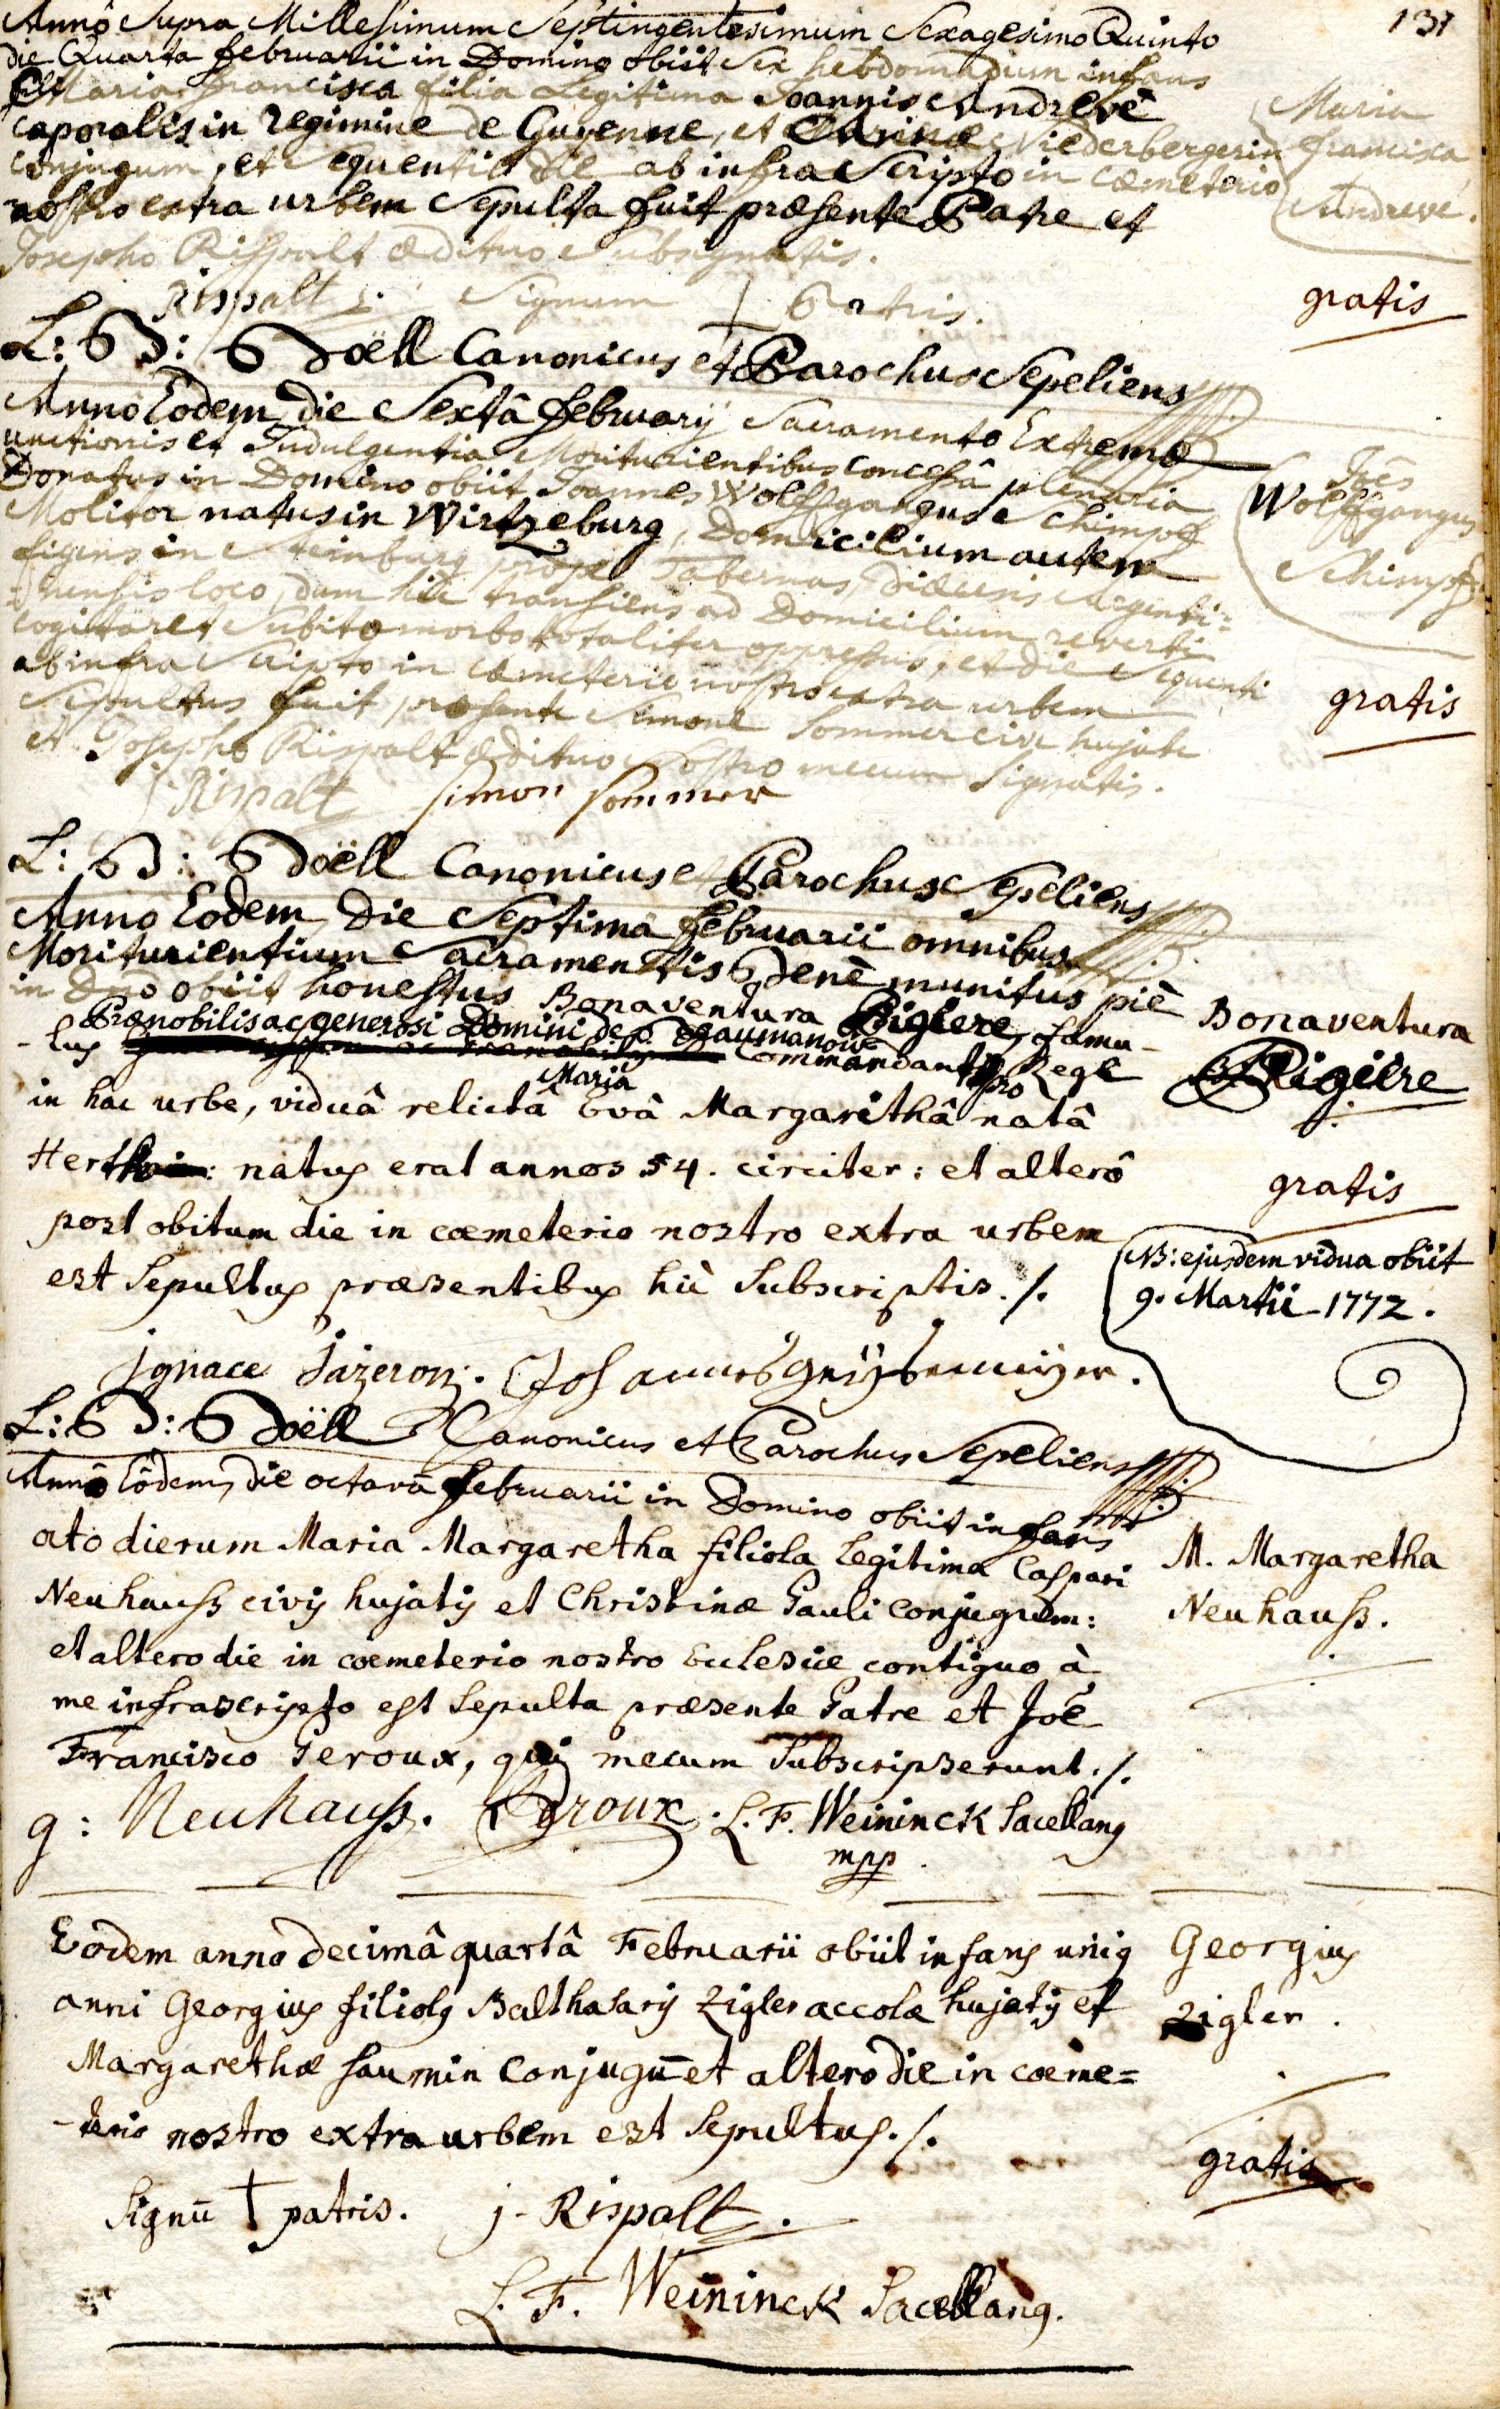 137
Annô Supra Millesimum Septingentesimum Sexagesimo Quinto
die Quarta februarii in Domino obiit Sex hebdomadum infans
Maria francisca filia Legitima Joannis Andrevé
caporalis in regimine de Guyenne, et Niederbergerin
conjugum, et Sequenti die ab infra Scripto in cœmeterio
nostro extra urbem Sepulta fuit præsente Patre et
Josepho Rispalt ædituo Subsignatis.
Maria
francisca
Andrevé.
gratis
Rispalt Signum † Patris.
Döell Canonicus et Parochus Sepeliens
Anno Eodem die Sextâ februarij Sacramento Extremæ
unctionis et Indulgentia Moriturientibus concessâ plenaria
Donatus in Domino obiit Joannes Wolffgangus Schimpff
Molitor natus in Wirtzeburg, Domicilium autem
figens in Steinburg prope Tabernas, Diœcesis Argenti=
nensis loco, dum hic transiens ad Domicilium reverti
cogitaret Subito morbo totaliter oppressus, et die Sequenti
ab infra Scripto in cœmeterio nostro extra urbem
Sepultus fuit præsente Simone Sommer cive hujate
et Josepho Rispalt ædituo nostro mecum Signatis.
Joês
Wolffgangus
Schimpff
gratis
Rispalt Simon Sommer
Döell Canonicus et Parochus Sepeliens
Anno Eodem Die Septima februarii omnibus
Moriturientium Sacramentis bene munitus piè
in Dnô obiit honestus Bonaventura Rigiere, famu-
Prænobilis ac generosi Domini de Beaumanoir
-lus Commandant pro Rege
Maria
in hac urbe, viduâ relictâ Evâ Margarithâ natâ
Herth: natus erat annos 54. circiter: et alterô
post obitum die in cœmeterio nostro extra urbem
est Sepultus præsentibus hìc Subscriptis ./.
Bonaventura
Rigiere
gratis
NB: ejusdem vidua obiit
9. Martii 1772.
Ignace Jazeron.
Döell Canonicus et Parochus Sepeliens
Annô Eôdem, die octavâ februarii in Domino obiit infans
octo dierum Maria Margaretha filiola Legitima Caspari
Neuhauß civis hujatis et Christinæ Pauli conjugum:
et altero die in cœmeterio nostro Ecclesiæ contiguo à
me infrascripto est Sepulta præsente Patre et Joê
Francisco Geroux, qui mecum Subscripserunt ./.
M. Margaretha
Neuhauß.
g: Neuhauß. Geroux. L. F. Weininck Sacellanus
mpp
Eodem anno decimâ quartâ Februarii obiit infans unius
anni Georgius filiolus Balthasaris Zigler accolæ hujatis et
Margarethæ Saumin conjugū et altero die in cœme=
-terio nostro extra urbem est Sepultus ./.
Georgius
Zigler.
gratis
Signū † patris. j. Rispalt.
L. F. Weininck Sacellanus.